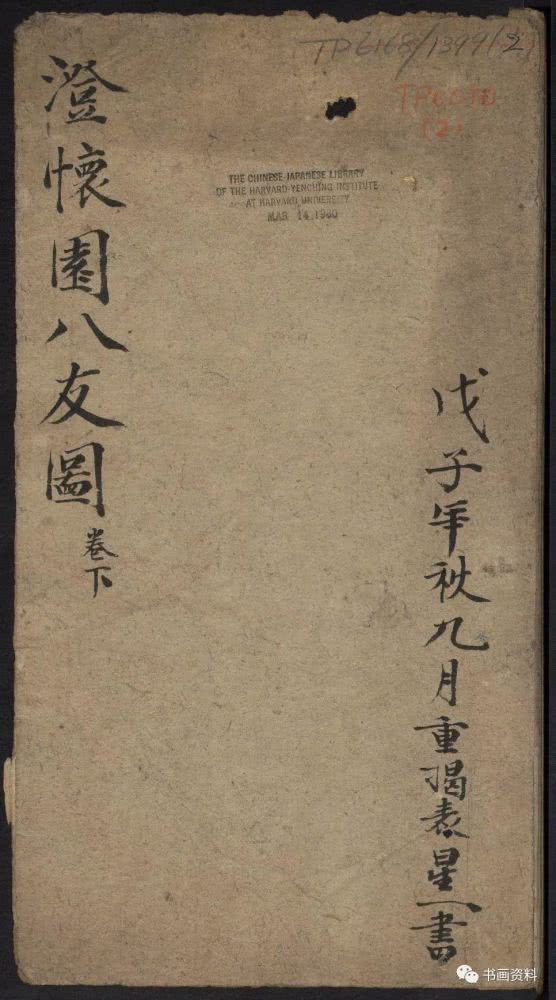 TP6168/1399(2)
(2)
THE CHINESE-JAPANESE LIBRARY
OF THE HARVARD-YENCHING INSTITUTE
AT HARVARD UNIVERSITY
MAR 14 1960
戊子年秋九月重揭表星一書
澄懷園八友圖
卷下
书画资料